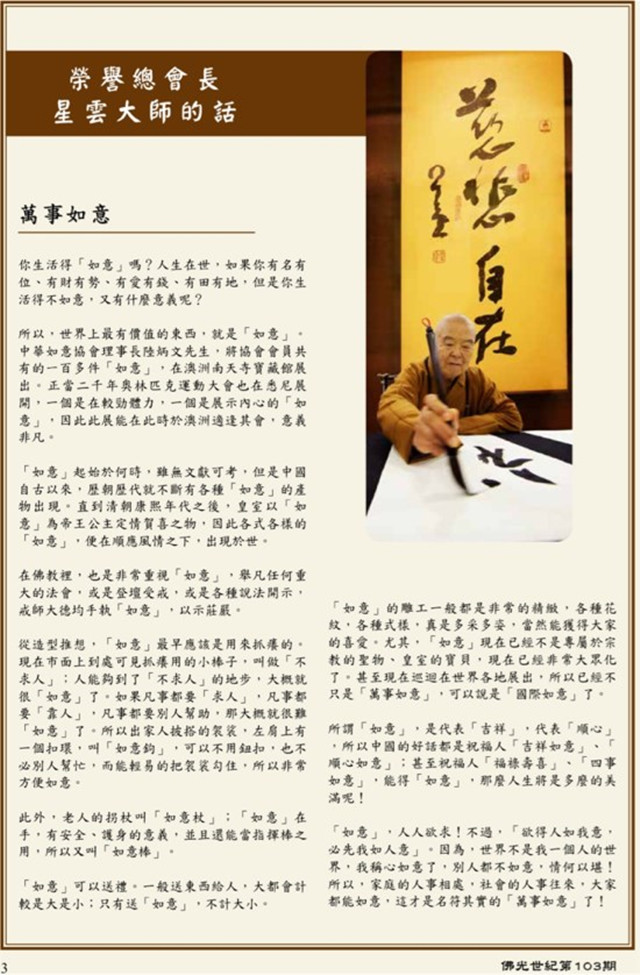 榮譽總會長
星雲大師的話
慈悲
自在
萬事如意
你生活得「如意」嗎？人生在世，如果你有名有
位、有財有勢、有愛有錢、有田有地，但是你生
活得不如意，又有什麼意義呢？
所以，世界上最有價值的東西，就是「如意」。
中華如意協會理事長陸炳文先生，將協會會員共
有的一百多件「如意」，在澳洲南天寺寶藏館展
出。正當二千年奧林匹克運動大會也在悉尼展
開，一個是在較勁體力，一個是展示內心的「如
意」，因此此展能在此時於澳洲適逢其會，意義
非凡。
「如意」起始於何時，雖無文獻可考，但是中國
自古以來，歷朝歷代就不斷有各種「如意」的產
物出現。直到清朝康熙年代之後，皇室以「如
意」為帝王公主定情賀喜之物，因此各式各樣的
「如意」，便在順應風情之下，出現於世。
在佛教裡，也是非常重視「如意」，舉凡任何重
大的法會，或是登壇受戒，或是各種說法開示，
戒師大德均手執「如意」，以示莊嚴。
從造型推想，「如意」最早應該是用來抓癢的。
現在市面上到處可見抓癢用的小棒子，叫做「不
求人」；人能夠到了「不求人」的地步，大概就
很「如意」了。如果凡事都要「求人」，凡事都
要「靠人」，凡事都要別人幫助，那大概就很難
「如意」了。所以出家人披搭的袈裟，左肩上有
一個扣環，叫「如意鉤」，可以不用鈕扣，也不
必別人幫忙，而能輕易的把袈裟勾住，所以非常
方便如意。
此外，老人的拐杖叫「如意杖」；「如意」在
手，有安全、護身的意義，並且還能當指揮棒之
用，所以又叫「如意棒」。
「如意」可以送禮。一般送東西給人，大都會計
較是大是小；只有送「如意」，不計大小。
「如意」的雕工一般都是非常的精緻，各種花
紋，各種式樣，真是多采多姿，當然能獲得大家
的喜愛。尤其，「如意」現在已經不是專屬於宗
教的聖物、皇室的寶貝，現在已經非常大眾化
了。甚至現在巡迴在世界各地展出，所以已經不
只是「萬事如意」，可以說是「國際如意」了。
所謂「如意」，是代表「吉祥」，代表「順心」
，所以中國的好話都是祝福人「吉祥如意」、「
順心如意」；甚至祝福人「福祿壽喜」、「四事
如意」，能得「如意」，那麼人生將是多麼的美
滿呢！
「如意」，人人欲求！不過，「欲得人如我意，
必先我如人意」。因為，世界不是我一個人的世
界，我稱心如意了，別人都不如意，情何以堪！
所以，家庭的人事相處，社會的人事往來，大家
都能如意，這才是名符其實的「萬事如意」了！
3
佛光世紀第103期